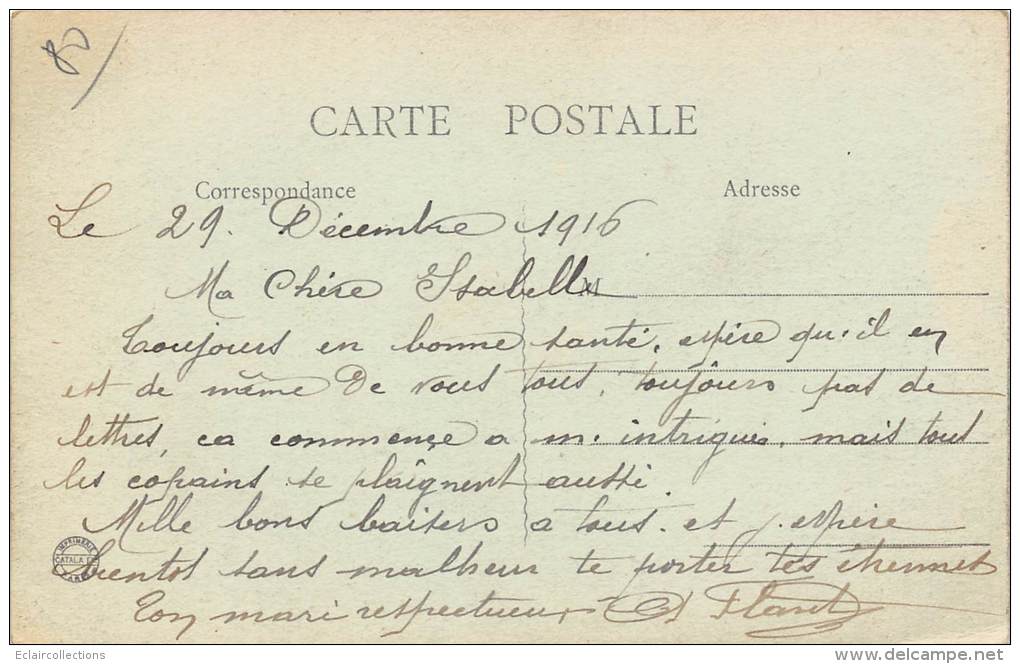 80
CARTE POSTALE
Correspondance
Adresse
Le 29. Décembre 1916
Ma Chère Isabelle
M
Toujours en bonne santé, espère qu'il en
est de même De vous tous, toujôurs pas de
lettres, ca commençe a m'intriguié, mais tous
les copains se plaîgnent aussi
Mille bons baisers a tous. et j'espère
bientot sans malheur te porter tes étrennes
Ton mari respectueux
IMPRIMERIE
CATALA
PARIS
Eclaircollections
delcampe.net